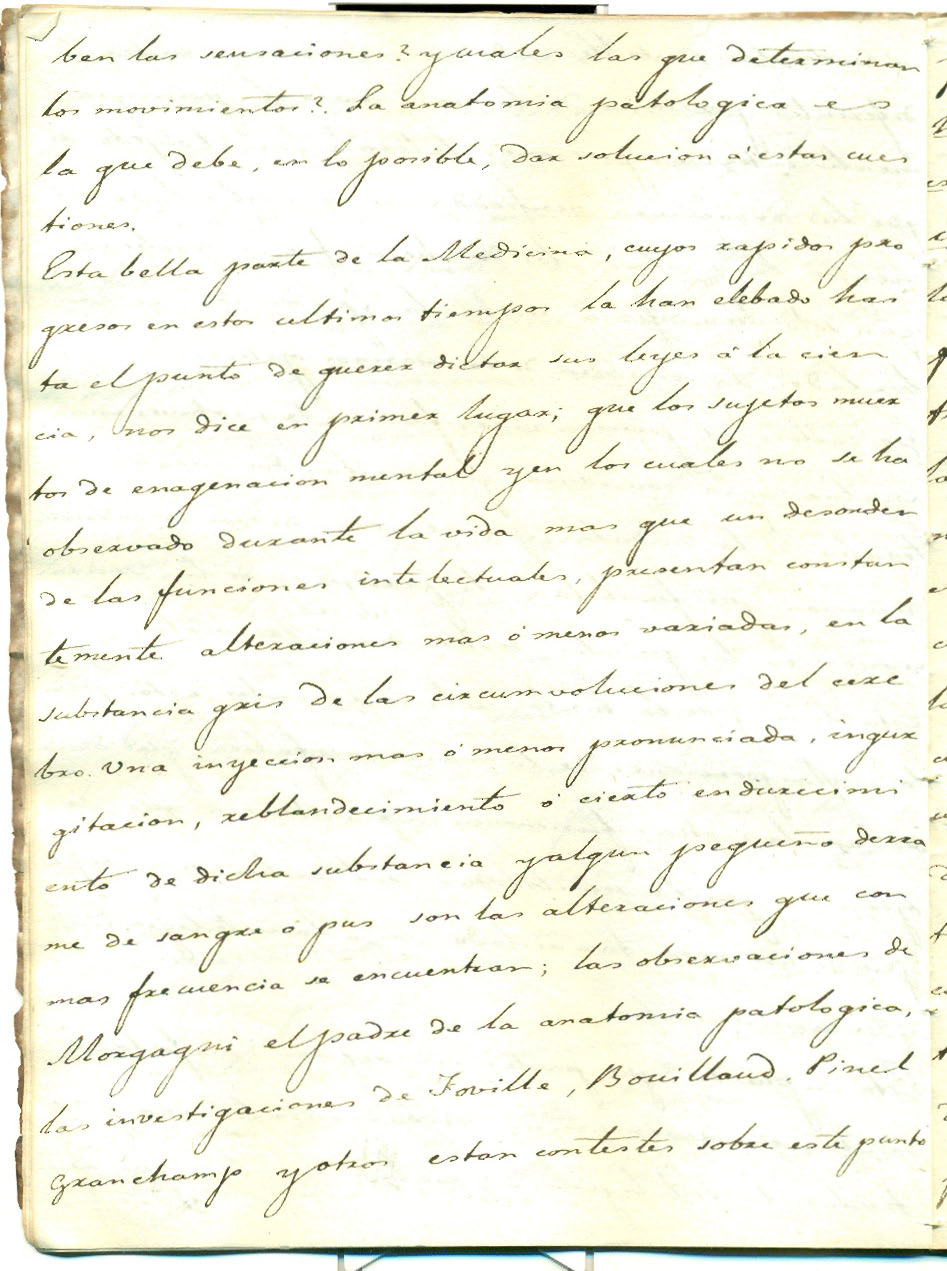 ben las sensaciones? y cuales las que determinan
los movimientos?. La anatomia patologica es
la que debe, en lo posible, dar solucion á estas cues
tiones.
Esta bella parte de la Medicina, cuyos rapidos pro
gresos en estos ultimos tiempos la han elebado has
ta el punto de querer dictar sus leyes á la cien
cia, nos dice en primer lugar; que los sujetos muer
tos de enagenacion mental y en los cuales no se ha
observado durante la vida mas que un desorden
de las funciones intelectuales, presentan constan
temente alteraciones mas ó menos variadas, en la
substancia gris de las circumvoluciones del cere
bro. Una inyeccion mas ó menos pronunciada, ingur
gitacion, reblandecimiento ó cierto endurecimi
ento de dicha substancia y algun pequeño derra
me de sangre ó pus son las alteraciones que con
mas frecuencia se encuentran; las observaciones de
Morgagni el padre de la anatomia patologica,
las investigaciones de Foville, Bouillaud, Pinel
Granchamp y otros estan contestes sobre este punto